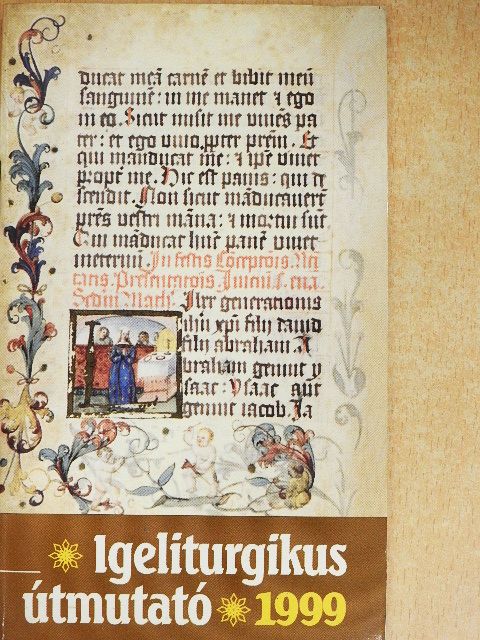 ducat meā carnē et bibit meū
sanguinē: in me manet ⁊ ego
in eo. Sicut misit me vivēs pa
ter: et ego vivo ꝓpter prēm. Et
qui māducat me: ⁊ ipse vivet
propt me. Hic est panis: qui de
scendit. Non sicut māducaverūt
prēs vestri māna: ⁊ mortui sūt
Qui māducat hūc panē vivet
In festis
generationis
ihū xpī filij david
filij abraham. A
braham genuit y
saac: Ysaac aūt
genuit iacob. Ja
Igeliturgikus
útmutató 1999